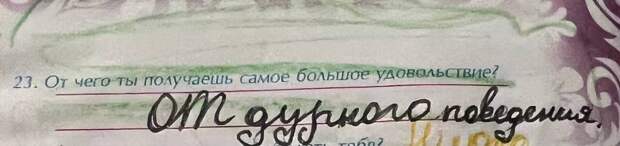 23. От чего ты получаешь самое большое удовольствие?
От дурного поведения.